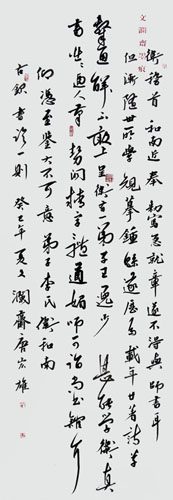 文瀾齋墨痕
衛稽首和南近奉勅寫急就章遂不得與師書耳
但衛隨世所學規摹鍾繇遂歷多載年廿著詩草
隸通解不敢上呈衛有一弟子王逸少甚能學衛真
書咄咄逼人筆勢洞精字體遒媚師可詣尚書館耳
仰憑至鑒大不可言弟子李氏衛和南
古賢書論一則 癸巳年夏文瀾齋唐宏雄